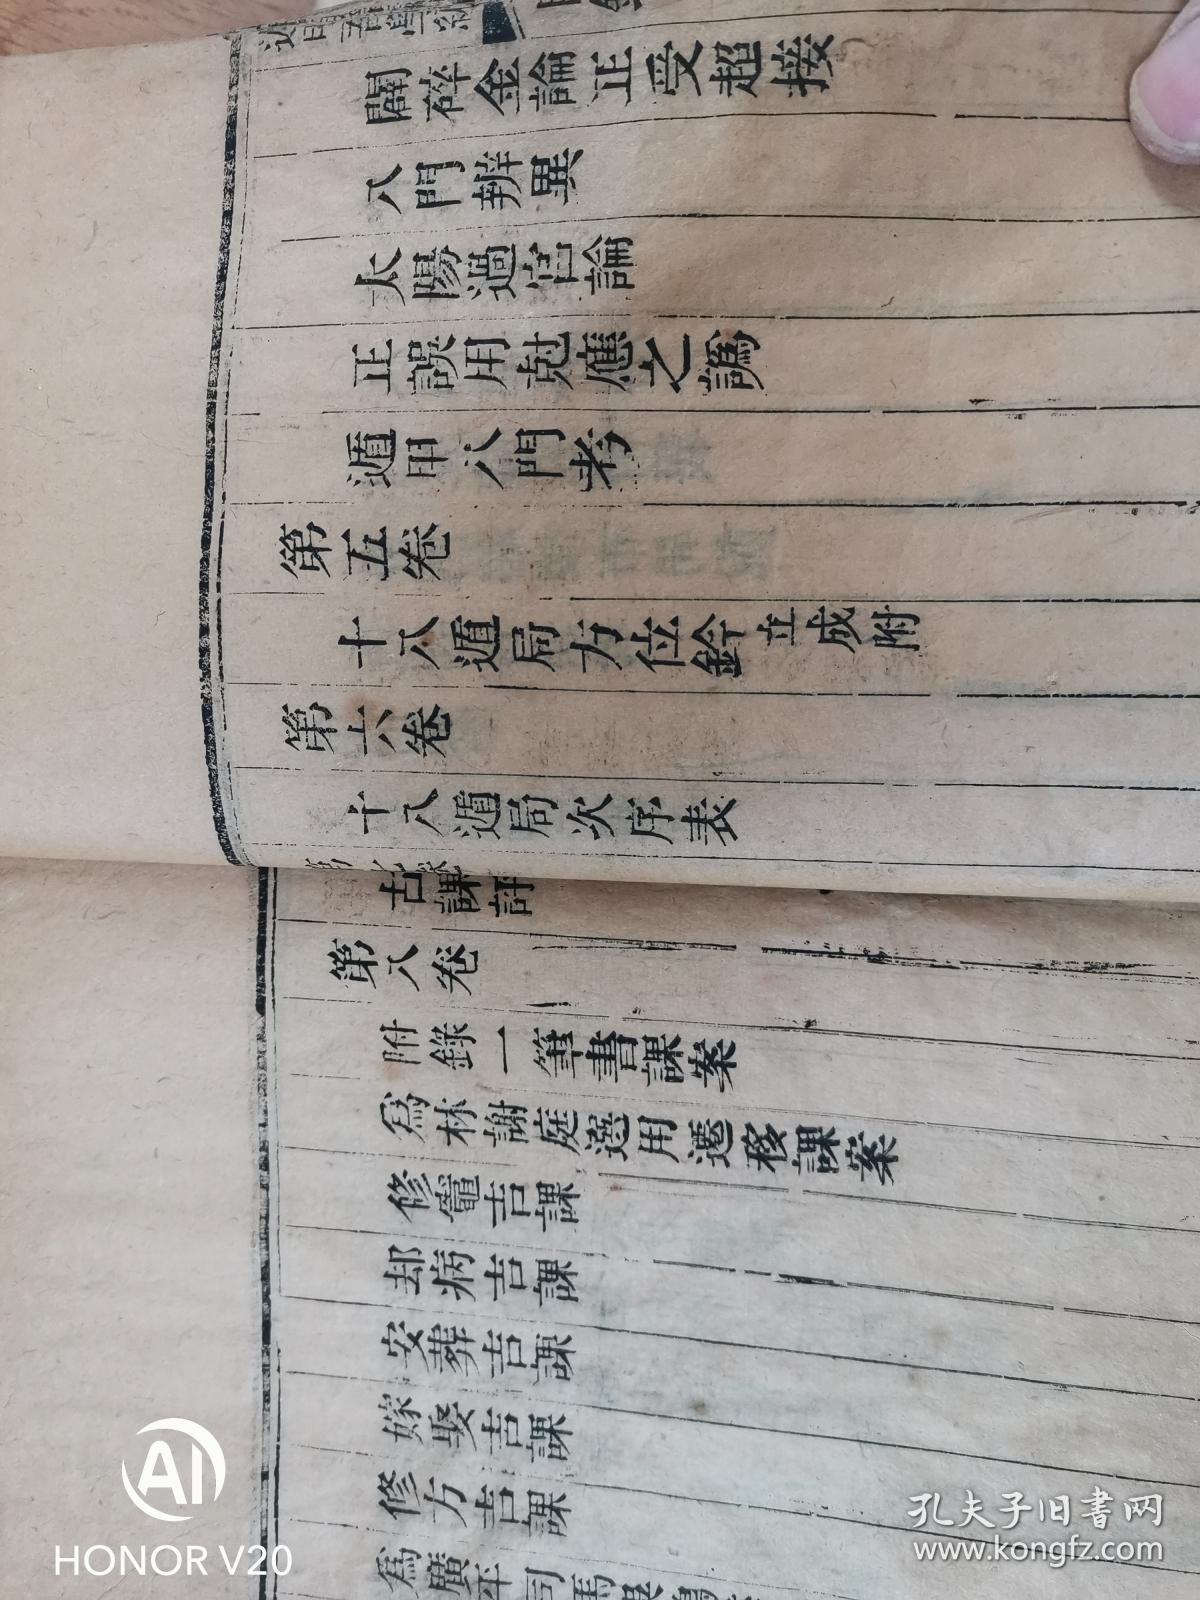 闢碎金論正受超接
八門辨異
太陽過宮論
正誤用尅應之譌
遁甲八門考
第五卷
十八遁局方位鈐立成附
第六卷
十八遁局次序表
古課評
第八卷
附錄一筆書課案
為林謝庭選用遷移課案
修竈吉課
却病吉課
安葬吉課
嫁娶吉課
修方吉課
為廣平司馬
AI
HONOR V20
孔夫子旧书网
www.kongfz.com